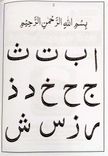 بِسْمِ اللهِ الرَّحْمٰنِ الرَّحِيْمِ
ا ب ت ث
ج ح خ د ذ
ر ز س ش